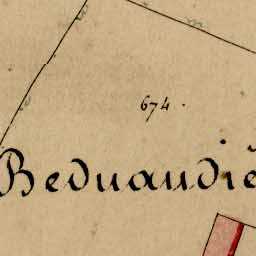 674.
Beduaudiè